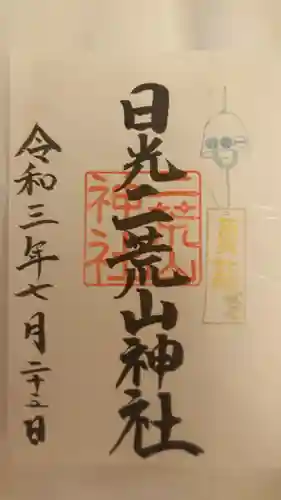 日光二荒山神社
二荒山
神社
令和三年七月二十三日